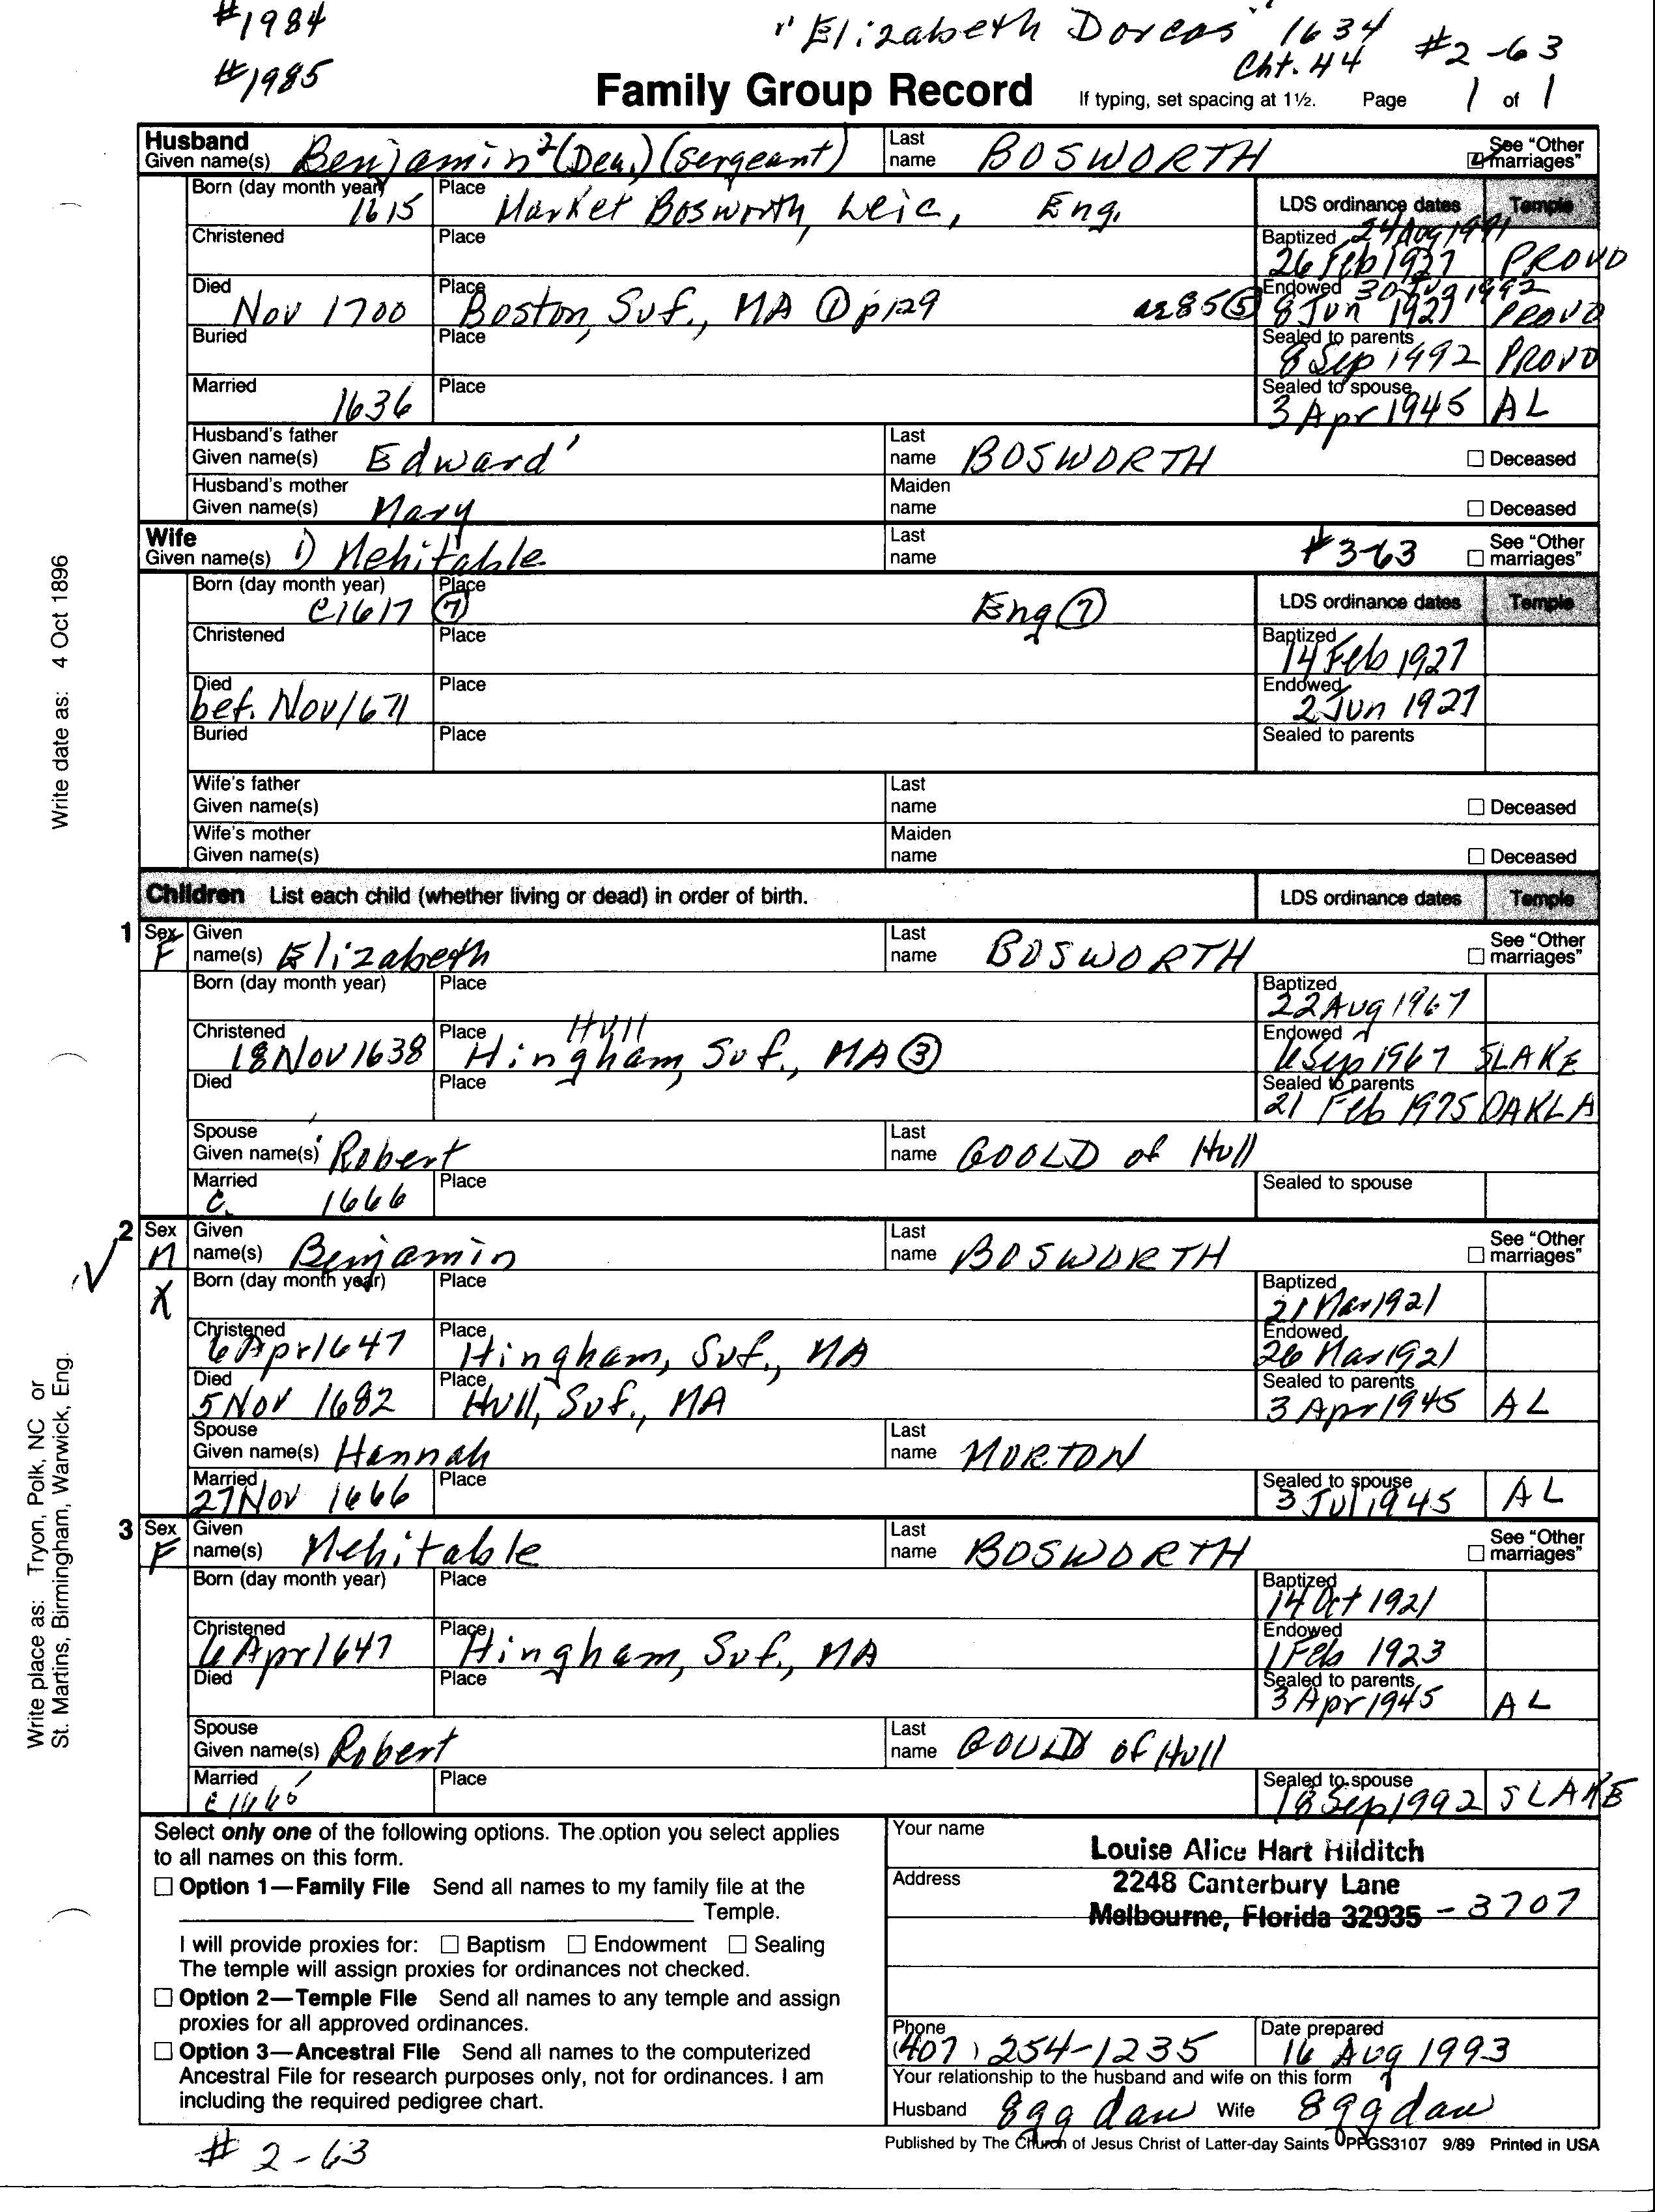 #1984
"Elizabeth Dorcas" 1634
#1985
Cht. 44 #2-63
Family Group Record If typing, set spacing at 1½. Page 1 of 1
Husband
Given name(s) Benjamin² (Dea.) (Sergeant) Last name BOSWORTH See "Other marriages"
Born (day month year) 1615 Place Market Bosworth, Leic, Eng. LDS ordinance dates Temple
Christened Place Baptized 24 Aug 1991
26 Feb 1927 PROVO
Died Nov 1700 Place Boston, Suf., MA ① p129 Endowed 30 1992
8 Jun 1927 PROVO
Buried Place Sealed to parents 8 Sep 1992 PROVO
Married 1636 Place Sealed to spouse 3 Apr 1945 AL
Husband's father
Given name(s) Edward' Last name BOSWORTH Deceased
Husband's mother
Given name(s) Mary Maiden name Deceased
Wife
Given name(s) 1) Mehitable Last name #3-63 See "Other marriages"
Born (day month year) c1617 Place ⑦ Eng ⑦ LDS ordinance dates Temple
Christened Place Baptized 14 Feb 1927
Died bef. Nov 1671 Place Endowed 2 Jun 1927
Buried Place Sealed to parents
Wife's father
Given name(s) Last name Deceased
Wife's mother
Given name(s) Maiden name Deceased
Children List each child (whether living or dead) in order of birth. LDS ordinance dates Temple
1 Sex F Given name(s) Elizabeth Last name BOSWORTH See "Other marriages"
Born (day month year) Place Baptized 22 Aug 1967
Christened 18 Nov 1638 Place Hull Hingham, Suf., MA ③ Endowed 6 Sep 1967 SLAKE
Died Place Sealed to parents 21 Feb 1975 OAKLA
Spouse
Given name(s) Robert Last name GOOLD of Hull
Married c. 1666 Place Sealed to spouse
2 Sex M Given name(s) Benjamin Last name BOSWORTH See "Other marriages"
X Born (day month year) Place Baptized 21 Mar 1921
Christened 6 Apr 1647 Place Hingham, Suf., MA Endowed 26 Mar 1921
Died 5 Nov 1682 Place Hull, Suf., MA Sealed to parents 3 Apr 1945 AL
Spouse
Given name(s) Hannah Last name MORTON
Married 27 Nov 1666 Place Sealed to spouse 3 Jul 1945 AL
3 Sex F Given name(s) Mehitable Last name BOSWORTH See "Other marriages"
Born (day month year) Place Baptized 14 Oct 1921
Christened 6 Apr 1647 Place Hingham, Suf., MA Endowed 1 Feb 1923
Died Place Sealed to parents 3 Apr 1945 AL
Spouse
Given name(s) Robert Last name GOULD of Hull
Married Place Sealed to spouse 18 Sep 1992 SLAKE
Select only one of the following options. The option you select applies
to all names on this form.
Option 1—Family File Send all names to my family file at the
Temple.
I will provide proxies for: Baptism Endowment Sealing
The temple will assign proxies for ordinances not checked.
Option 2—Temple File Send all names to any temple and assign
proxies for all approved ordinances.
Option 3—Ancestral File Send all names to the computerized
Ancestral File for research purposes only, not for ordinances. I am
including the required pedigree chart.
Your name Louise Alice Hart Hilditch
Address 2248 Canterbury Lane
Melbourne, Florida 32935 - 3707
Phone (407) 254-1235 Date prepared 16 Aug 1993
Your relationship to the husband and wife on this form
Husband 8gg dau Wife 8gg dau
Published by The Church of Jesus Christ of Latter-day Saints PFGS3107 9/89 Printed in USA
#2-63
Write date as: 4 Oct 1896
Write place as: Tryon, Polk, NC or
St. Martins, Birmingham, Warwick, Eng.